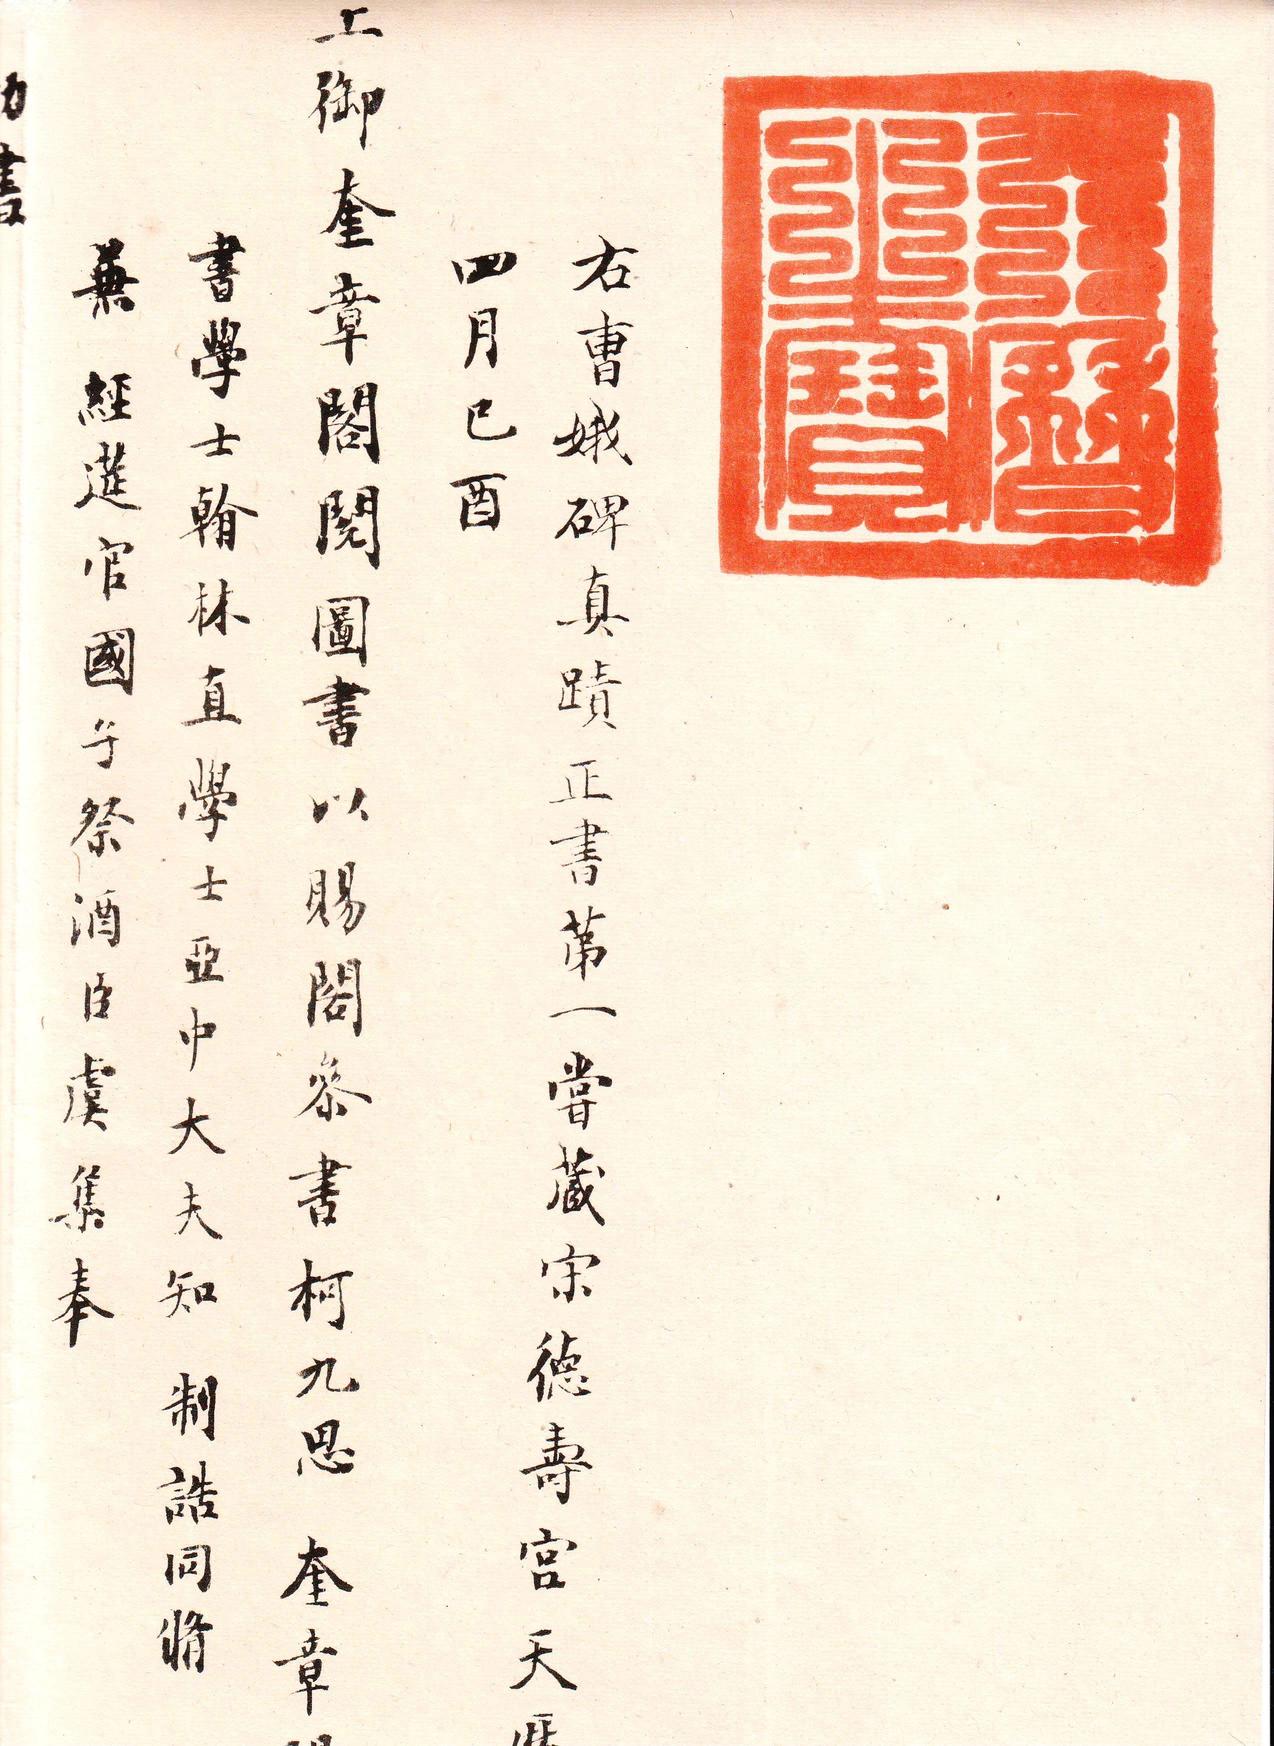 天曆之寶
右曹娥碑真蹟正書第一嘗藏宋德壽宮天曆
四月己酉
上御奎章閣閱圖書以賜閣參書柯九思 奎章閣
書學士翰林直學士亞中大夫知 制誥同脩
兼 經筵官國子祭酒臣虞集奉
書